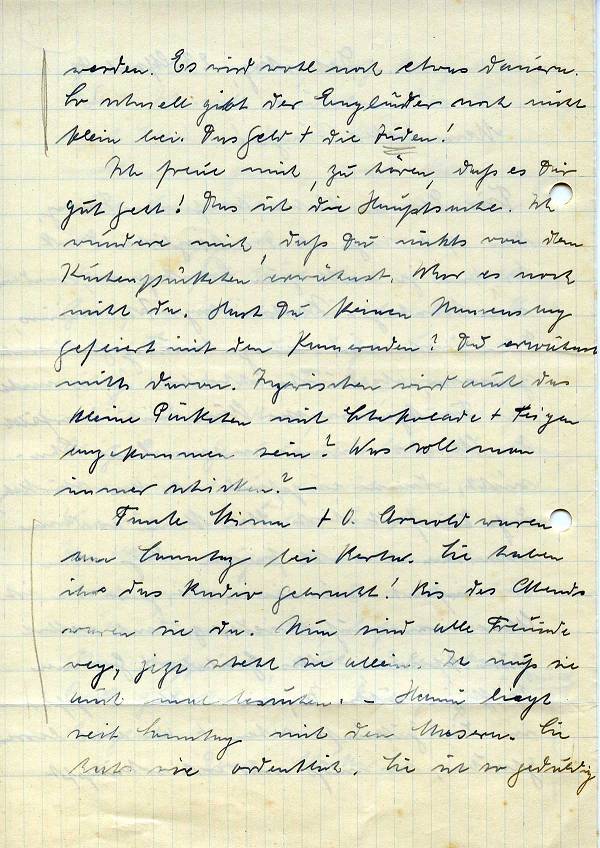 werden. Es wird wohl noch etwas dauern.
So schnell gibt der Engländer noch nicht
klein bei. Das Geld + die Juden!
Ich freue mich, zu hören, daß es Dir
gut geht! Das ist die Hauptsache. Ich
wundere mich, daß Du nichts von dem
Kuchenpäckchen erwähnst. War es noch
nicht da. Hast Du keinen Namenstag
gefeiert mit den Kameraden? Du erwähnst
nichts davon. Inzwischen wird auch das
kleine Päckchen mit Schokolade + Feigen
angekommen sein? Was soll man
immer schicken? —
Tante + O. Arnold waren
am Sonntag bei Sie haben
ihr das Radio gebracht! Bis des Abends
waren sie da. Nun sind alle Freunde
weg, jetzt steht sie allein. Ich muß sie
auch mal besuchen. – Hanni liegt
seit Sonntag mit den Masern. Sie
hat sie ordentlich. Sie ist so geduldig